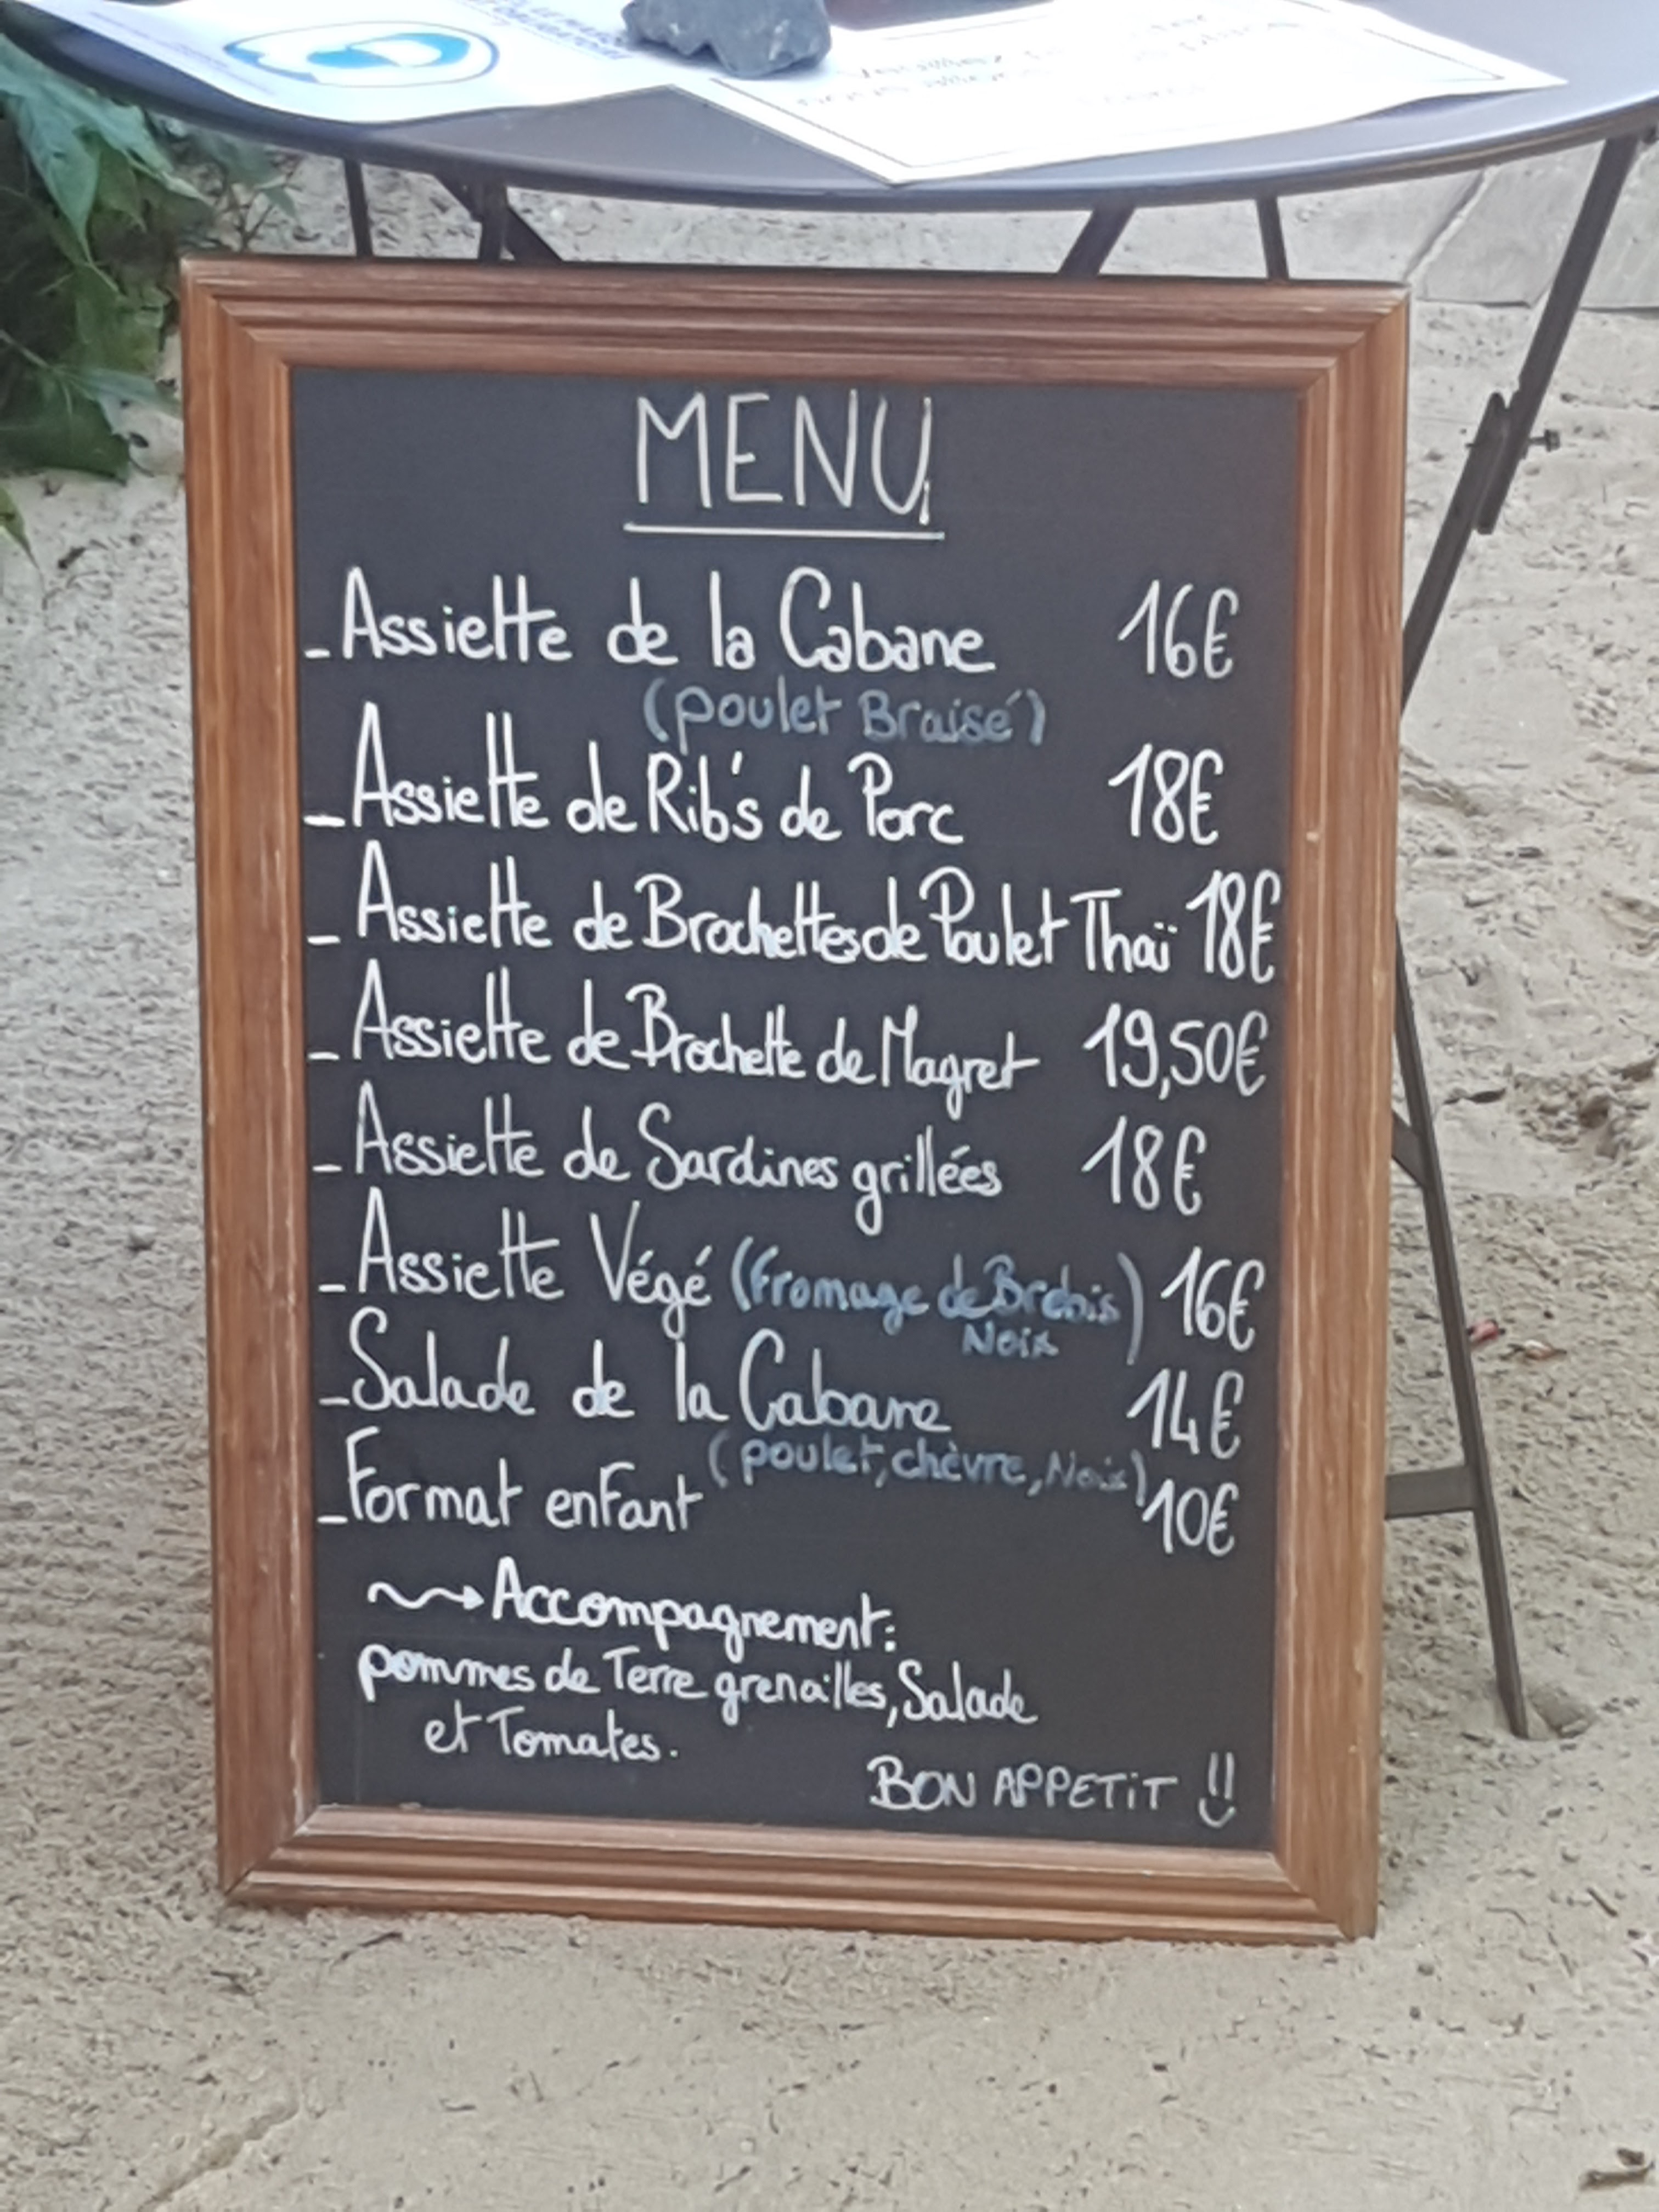 MENU
- Assiette de la Cabane 16€
(poulet Braisé)
- Assiette de Rib's de Porc 18€
- Assiette de Brochettes de Poulet Thaï 18€
- Assiette de Brochette de Magret 19,50€
- Assiette de Sardines grillées 18€
- Assiette Végé (fromage de Brebis 16€
Noix)
- Salade de la Cabane 14€
(poulet, chèvre, Noix)
- Format enfant 10€
Accompagnement:
pommes de Terre grenailles, Salade
et Tomates.
BON APPETIT !!